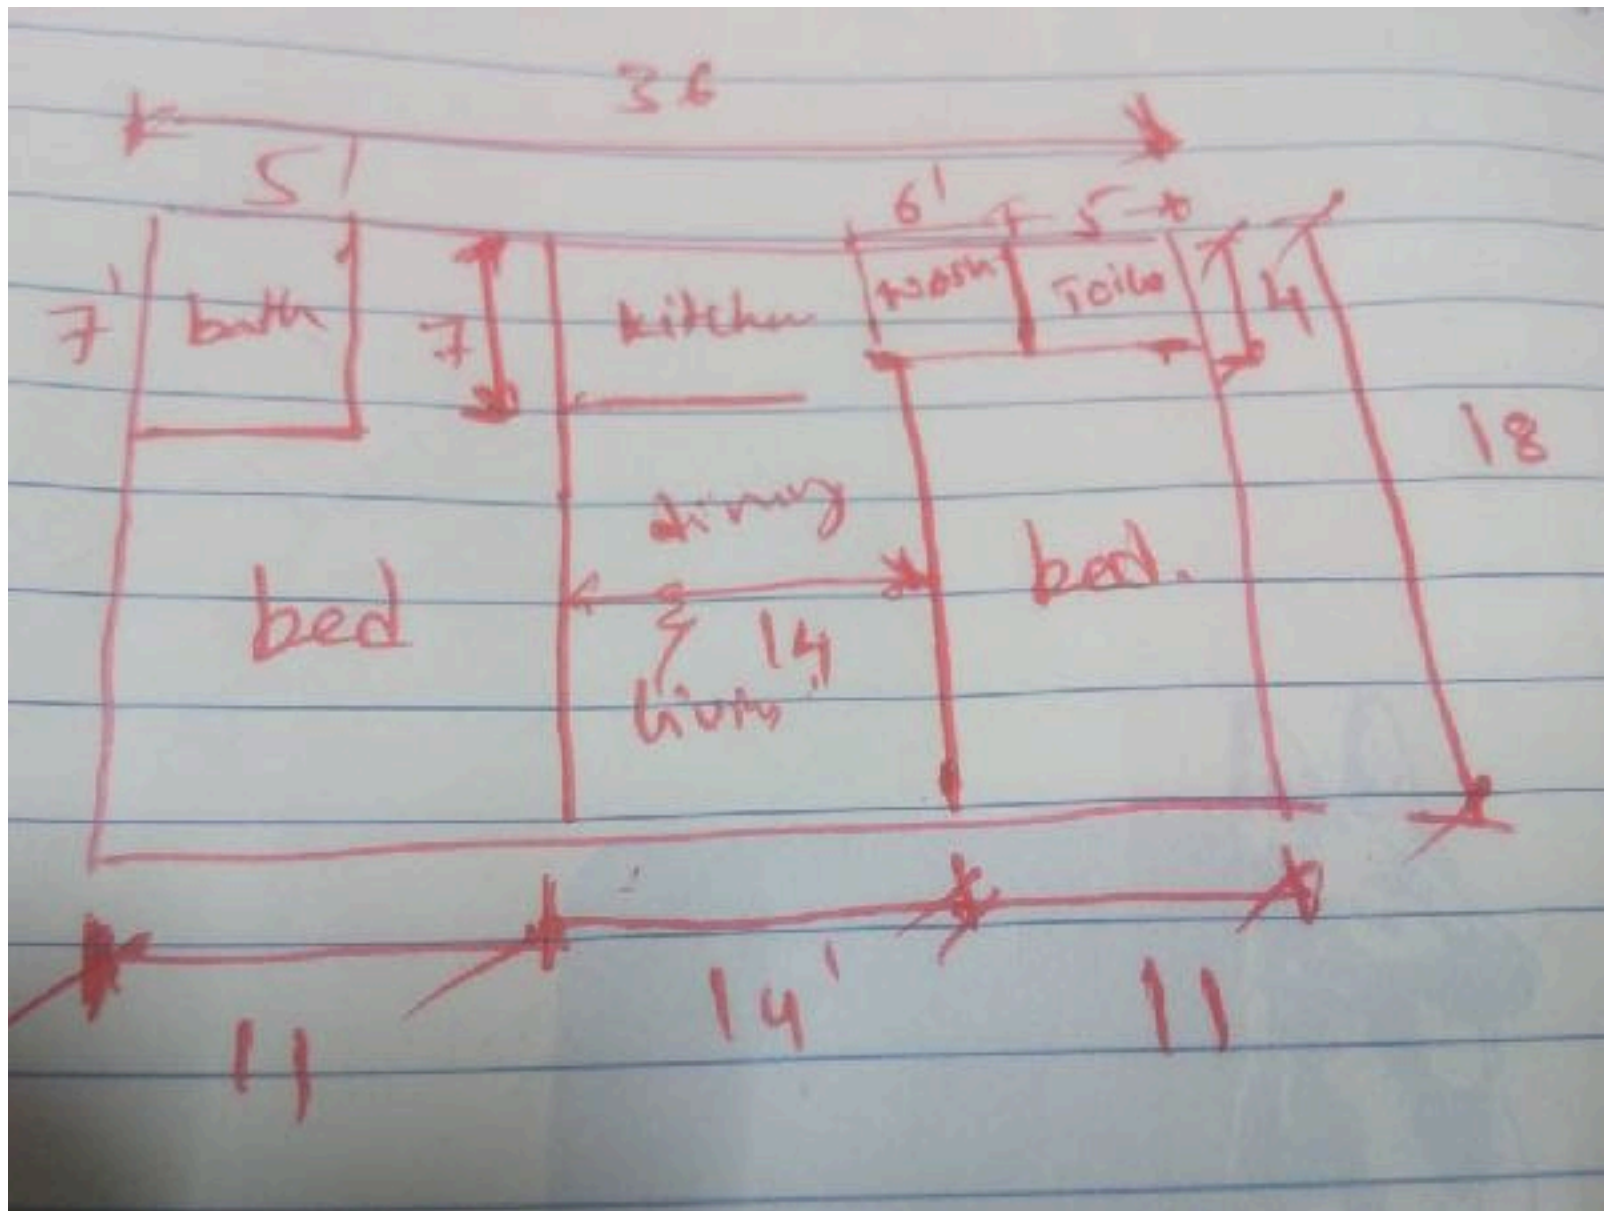 36
5'
6'
5
7'
bath
7
kitchen
wash
Toile
4
18
dining
&
14
living
bed
bed.
11
14'
11